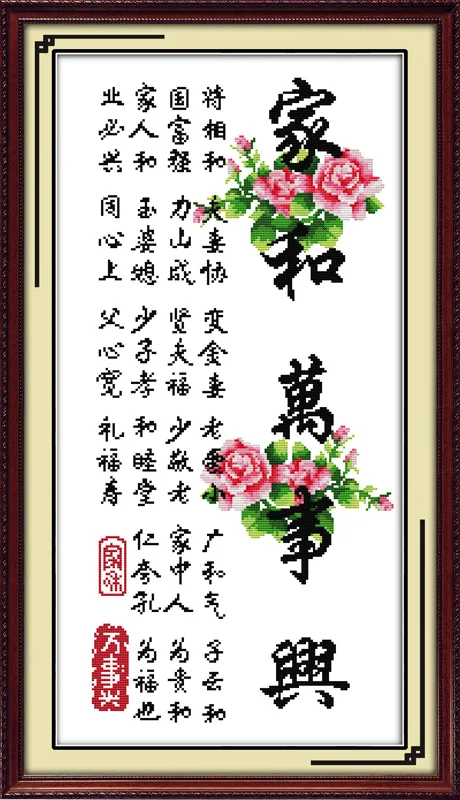 家和萬事興
将相和
国富强
家人和
业必兴
夫妻协
力山成
玉婆媳
同心上
变金妻
贤夫福
少子孝
父心宽
老爱小
少敬老
和睦堂
礼福寿
广和气
家中人
仁 孔
子云和
为贵和
为福也
家和
万事兴